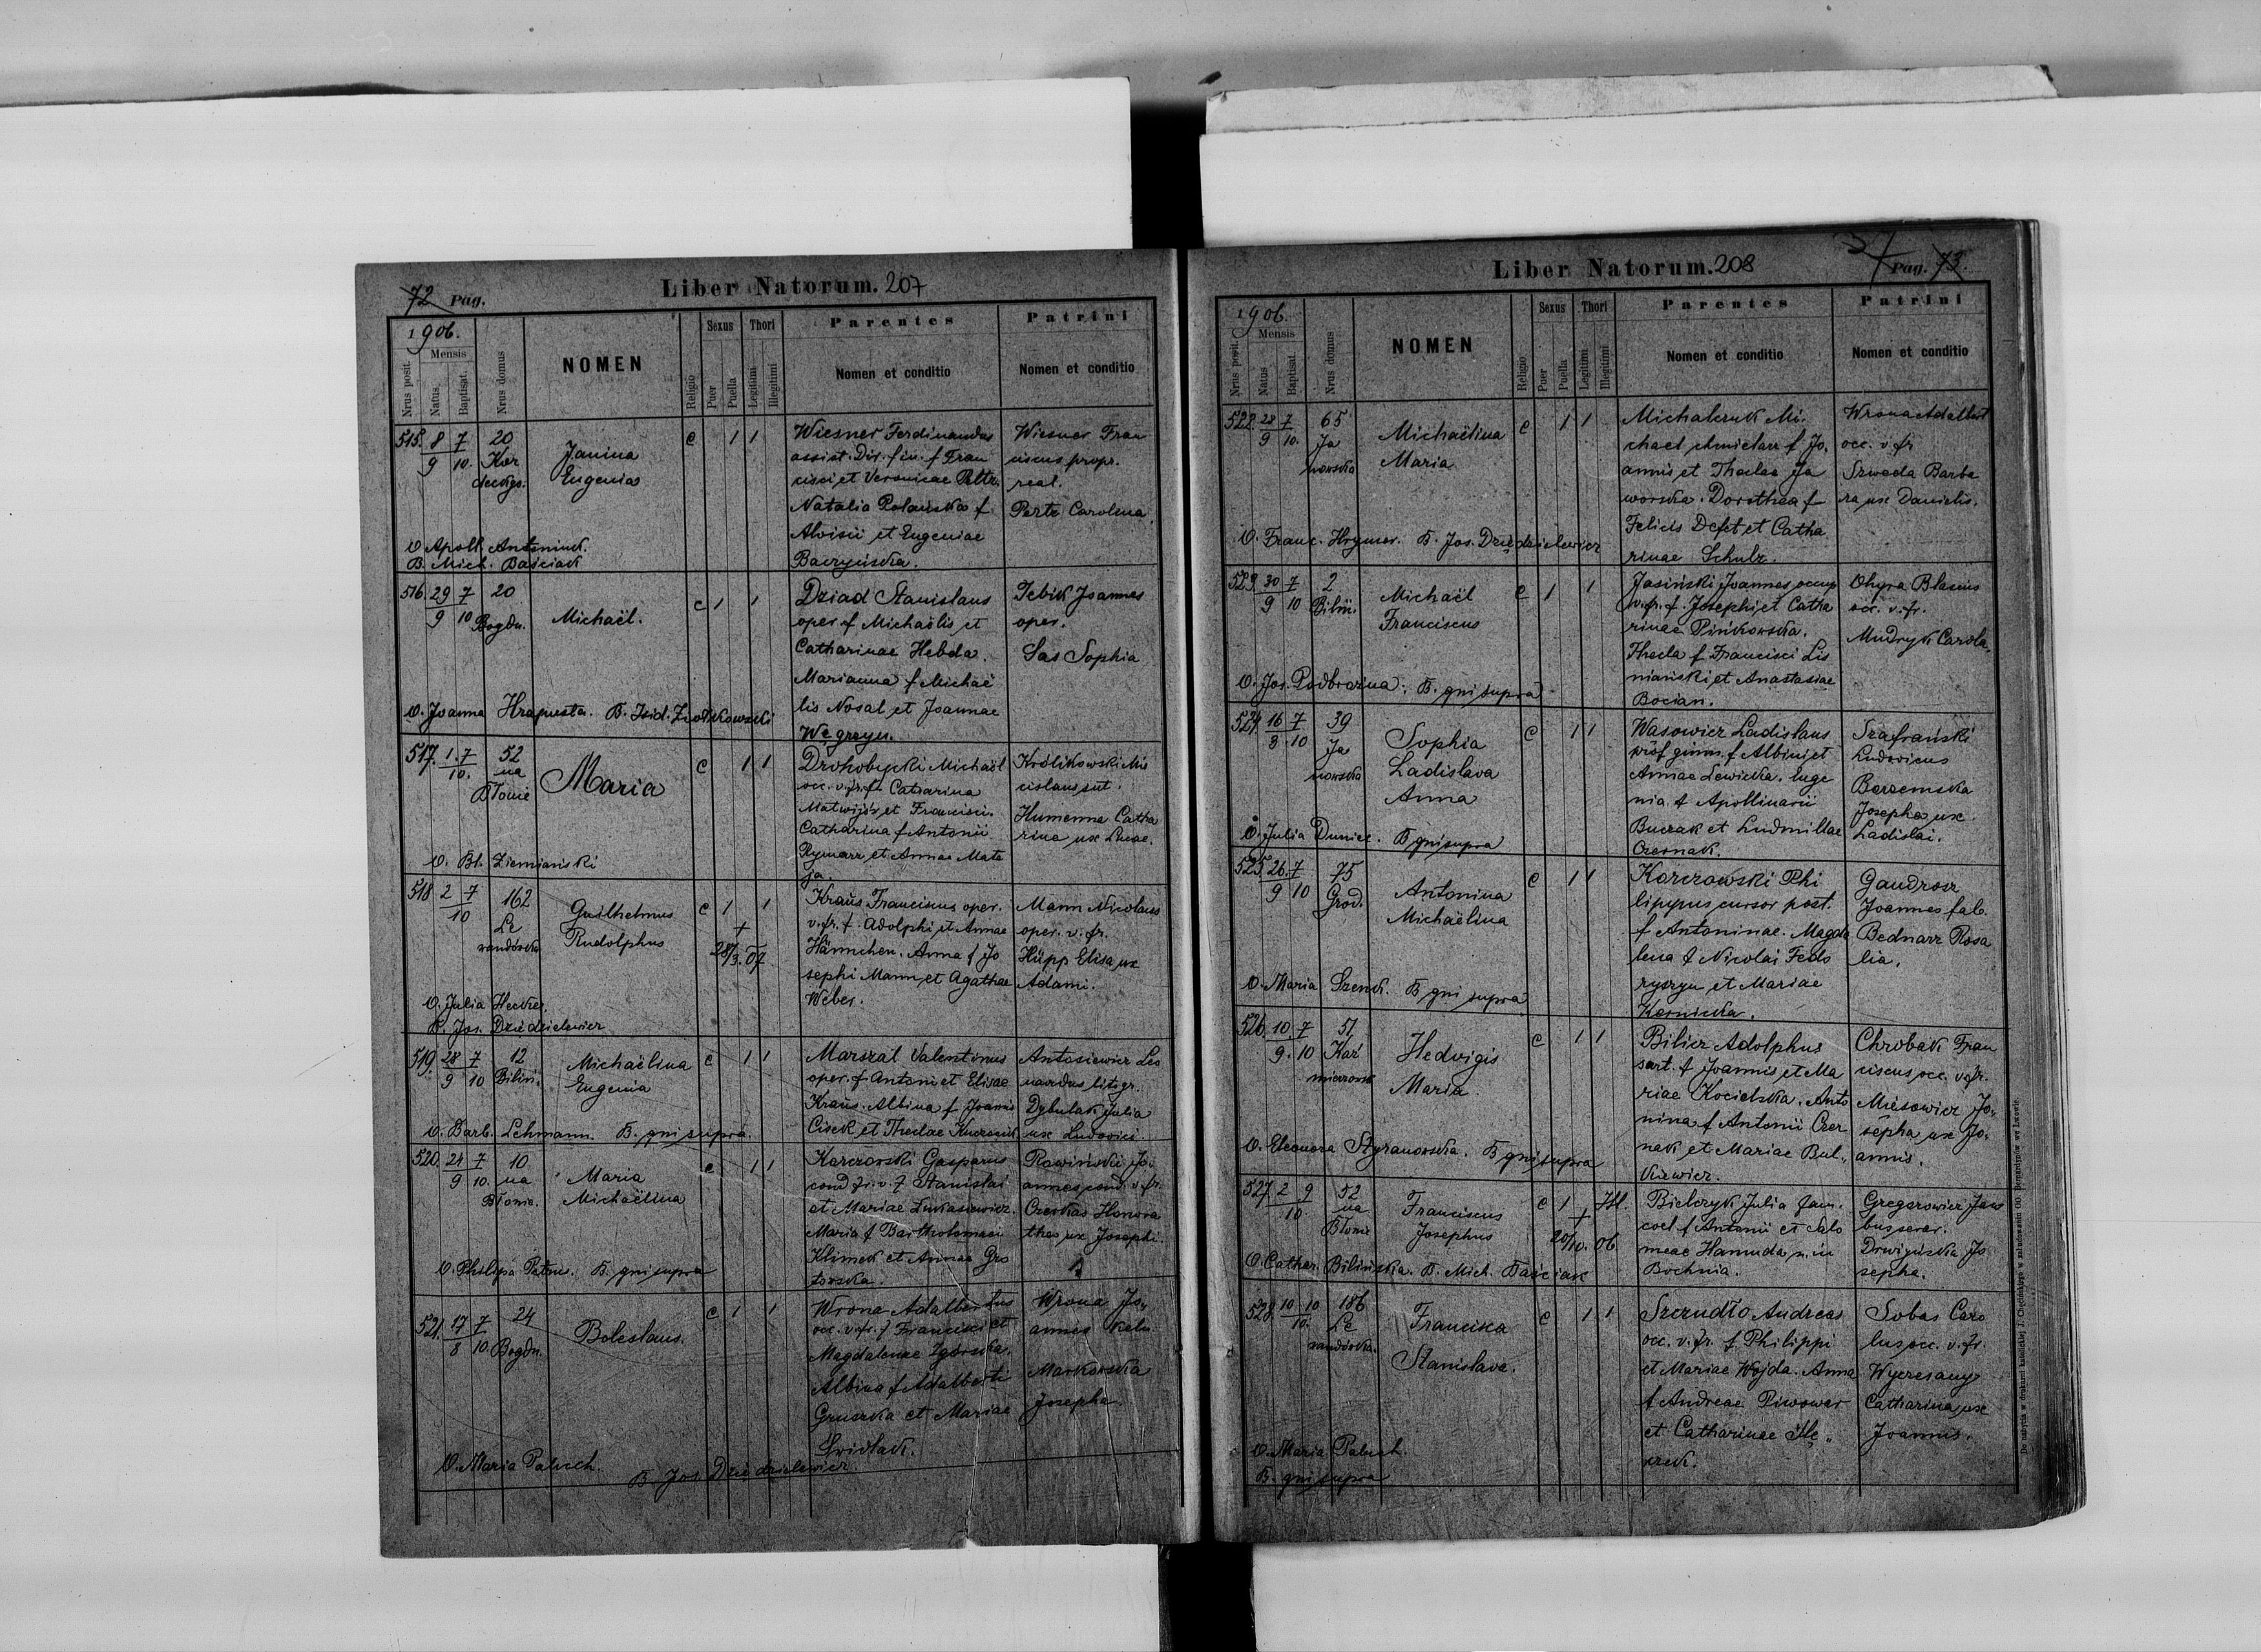 72 Pag.
Liber Natorum. 207
1906.
Nrus posit.
Mensis
Natus.
Baptisat.
Nrus domus
NOMEN
Religio
Sexus
Puer
Puella
Thori
Legitimi
Illegitimi
Parentes
Nomen et conditio
Patrini
Nomen et conditio
515. 8/9 7/10. 20
Janina
Eugenia
c 1 1
Wiesner Ferdinandus
assist. Dir. fin. f Fran
cisci et Veronicae Peltz.
Natalia Polańska f.
Aloisii et Eugeniae
Baczyńska.
Wiesner Fran
ciscus propr.
real.
Pertz Carolina
O. Apoll. Antoniuk.
B. Mich. Baściak
516. 29/9 7/10 20
Bogdn.
Michaël.
c 1 1
Dziad Stanislaus
oper. f Michaëlis et
Catharinae Hebda.
Marianna f Michaë
lis Nosal et Joannae
Węgrzyn.
Joannes
oper.
Sas Sophia
O. Joanna Hrapusta. B. Isid. Ziółkowski
517. 1. 7/10. 52
na
Błonie
Maria
c 1 1
Drohobycki Michaël
occ. v. fr. f. Catharina
Matwijów et Francisci.
Catharina f Antonii
Rymarz et Annae Mate
ja.
Królikowski Mie
cislaus sut.
Humenna Catha
rina ux Lucae.
O. Bl. Ziemiański
518. 2 7/10 162
Le
wandówka
Guilhelmus
Rudolphus
c 1 1
+
28/3. 07
Kraus Franciscus oper.
v. fr. f. Adolphi et Annae
Hännchen. Anna f Jo
sephi Mann et Agathae
Weber.
Mann Nicolaus
oper. v. fr.
Hüpp Elisa ux
Adami.
O. Julia Hecker
B. Jos. Dziędzielewicz
519. 28/9 7/10 12
Biliń.
Michaëlina
Eugenia
c 1 1
Marszał Valentinus
oper. f Antoni et Elisae
Kraus. Albina f Joannis
Cisek et Theclae
Antosiewicz Leo
nardus litogr.
Dybulak Julia
ux Ludovici
O. Barb. Lehmann. B. qui supra
520. 24/9 7/10. 10
na
Błonie.
Maria
Michaëlina
c 1 1
Karczowski Gasparus
cond fr. v. f Stanislai
et Mariae Łukasiewicz.
Maria f Bartholomaei
Klimek et Annae Gro
towska.
Rawiński Jo„
annes cond. v. fr.
Czerkas Honora
tha ux Josephi.
O. Philipa B. qui supra
521. 17/8 7/10. 24
Bogdn.
Boleslaus.
c 1 1
Wrona Adalbertus
occ. v. fr. f Francisci et
Magdalenae Zgórska.
Albina f Adalberti
Gruszka et Mariae
Świdłak.
Wrona Jo„
annes
Markowska
Josepha
O. Maria Paluch.
B. Jos. Dziędzielewicz
Liber Natorum. 208
37
Pag. 73.
1906.
Nrus posit.
Mensis
Natus
Baptisat.
Nrus domus
NOMEN
Religio
Sexus
Puer
Puella
Thori
Legitimi
Illegitimi
Parentes
Nomen et conditio
Patrini
Nomen et conditio
522. 28/9 7/10. 65
Ja
nowska
Michaëlina
Maria
c 1 1
Michalczuk Mi„
chael f Jo„
annis et Theclae Ja
worska. Dorothea f
Felicis Defet et Catha
rinae Schulz.
Wrona Adalbert
occ. v. fr
Szweda Barba
ra ux Danielis.
O. Franc. Hrymer. B. Jos. Dziędzielewicz
523. 30/9 7/10 2
Biliń.
Michaël
Franciscus
c 1 1
Jasiński Joannes occup
v. fr. f. Josephi et Catha
rinae Pińkowska.
Thecla f Francisci Lis
niański et Anastasiae
Bocian.
Ohyra Blasius
occ. v. fr.
Mudryk Carola.
O. Jos. Podbrożna. B. qui supra
524. 16/8 7/10 39
Ja
nowska
Sophia
Ladislava
Anna
c 1 1
Wąsowicz Ladislaus
prof. gimn. f Albini et
Annae Lewicka. Euge
nia f Apollinarii
Buczak et Ludmillae
Czernak.
Szafrański
Ludovicus
Barzemska
Josepha ux
Ladislai.
O. Julia Dunicz. B qui supra
525. 26/9 7/10 75
Grod.
Antonina
Michaëlina
c 1 1
Karczowski Phi
lippus cursor post.
f Antoninae. Magda
lena f Nicolai Fedo
ryszyn et Mariae
Kernicka.
Gaudrosz
Joannes fab.
Bednarz Rosa
lia.
O. Maria Szenk. B qui supra
526. 10/9. 7/10 51
Kaź
mierzowsk
Hedvigis
Maria
c 1 1
Bilicz Adolphus
sart. f Joannis et Ma
riae Kocielska. Anto
nina f Antonii Czer
nak et Mariae Bul„
kiewicz.
Chrobak Fran
ciscus occ. v. fr.
Miesowicz Jo„
sepha ux Jo„
annis.
O. Eleonora Styranowska. B qui supra
527. 2 9/10. 52
na
Błonie
Franciscus
Josephus
c 1 Ill.
+
20/10. 06
Bielczyk Julia fam.
coel. f Antonii et Salo
meae Hamuda n. in
Bochnia.
Gregorowicz Jaco
bus server.
Drwięńska Jo
sepha.
O. Cathar. Bilińska. B. Mich. Baściak
528. 10 10/10. 186
Le
wandówka.
Francisca
Stanislava.
c 1 1
Szczudło Andreas
occ. v. fr. f Philippi
et Mariae Wojda. Anna
f Andreae Piwowar
et Catharinae Mę„
czek.
Sobas Caro
lus occ. v. fr.
Wyczesany
Catharina ux
Joannis.
O. Maria Paluch.
B. qui supra
Do nabycia w drukarni katolickiej J. Chęcińskiego w zabudowaniu OO. Bernardynów we Lwowie.